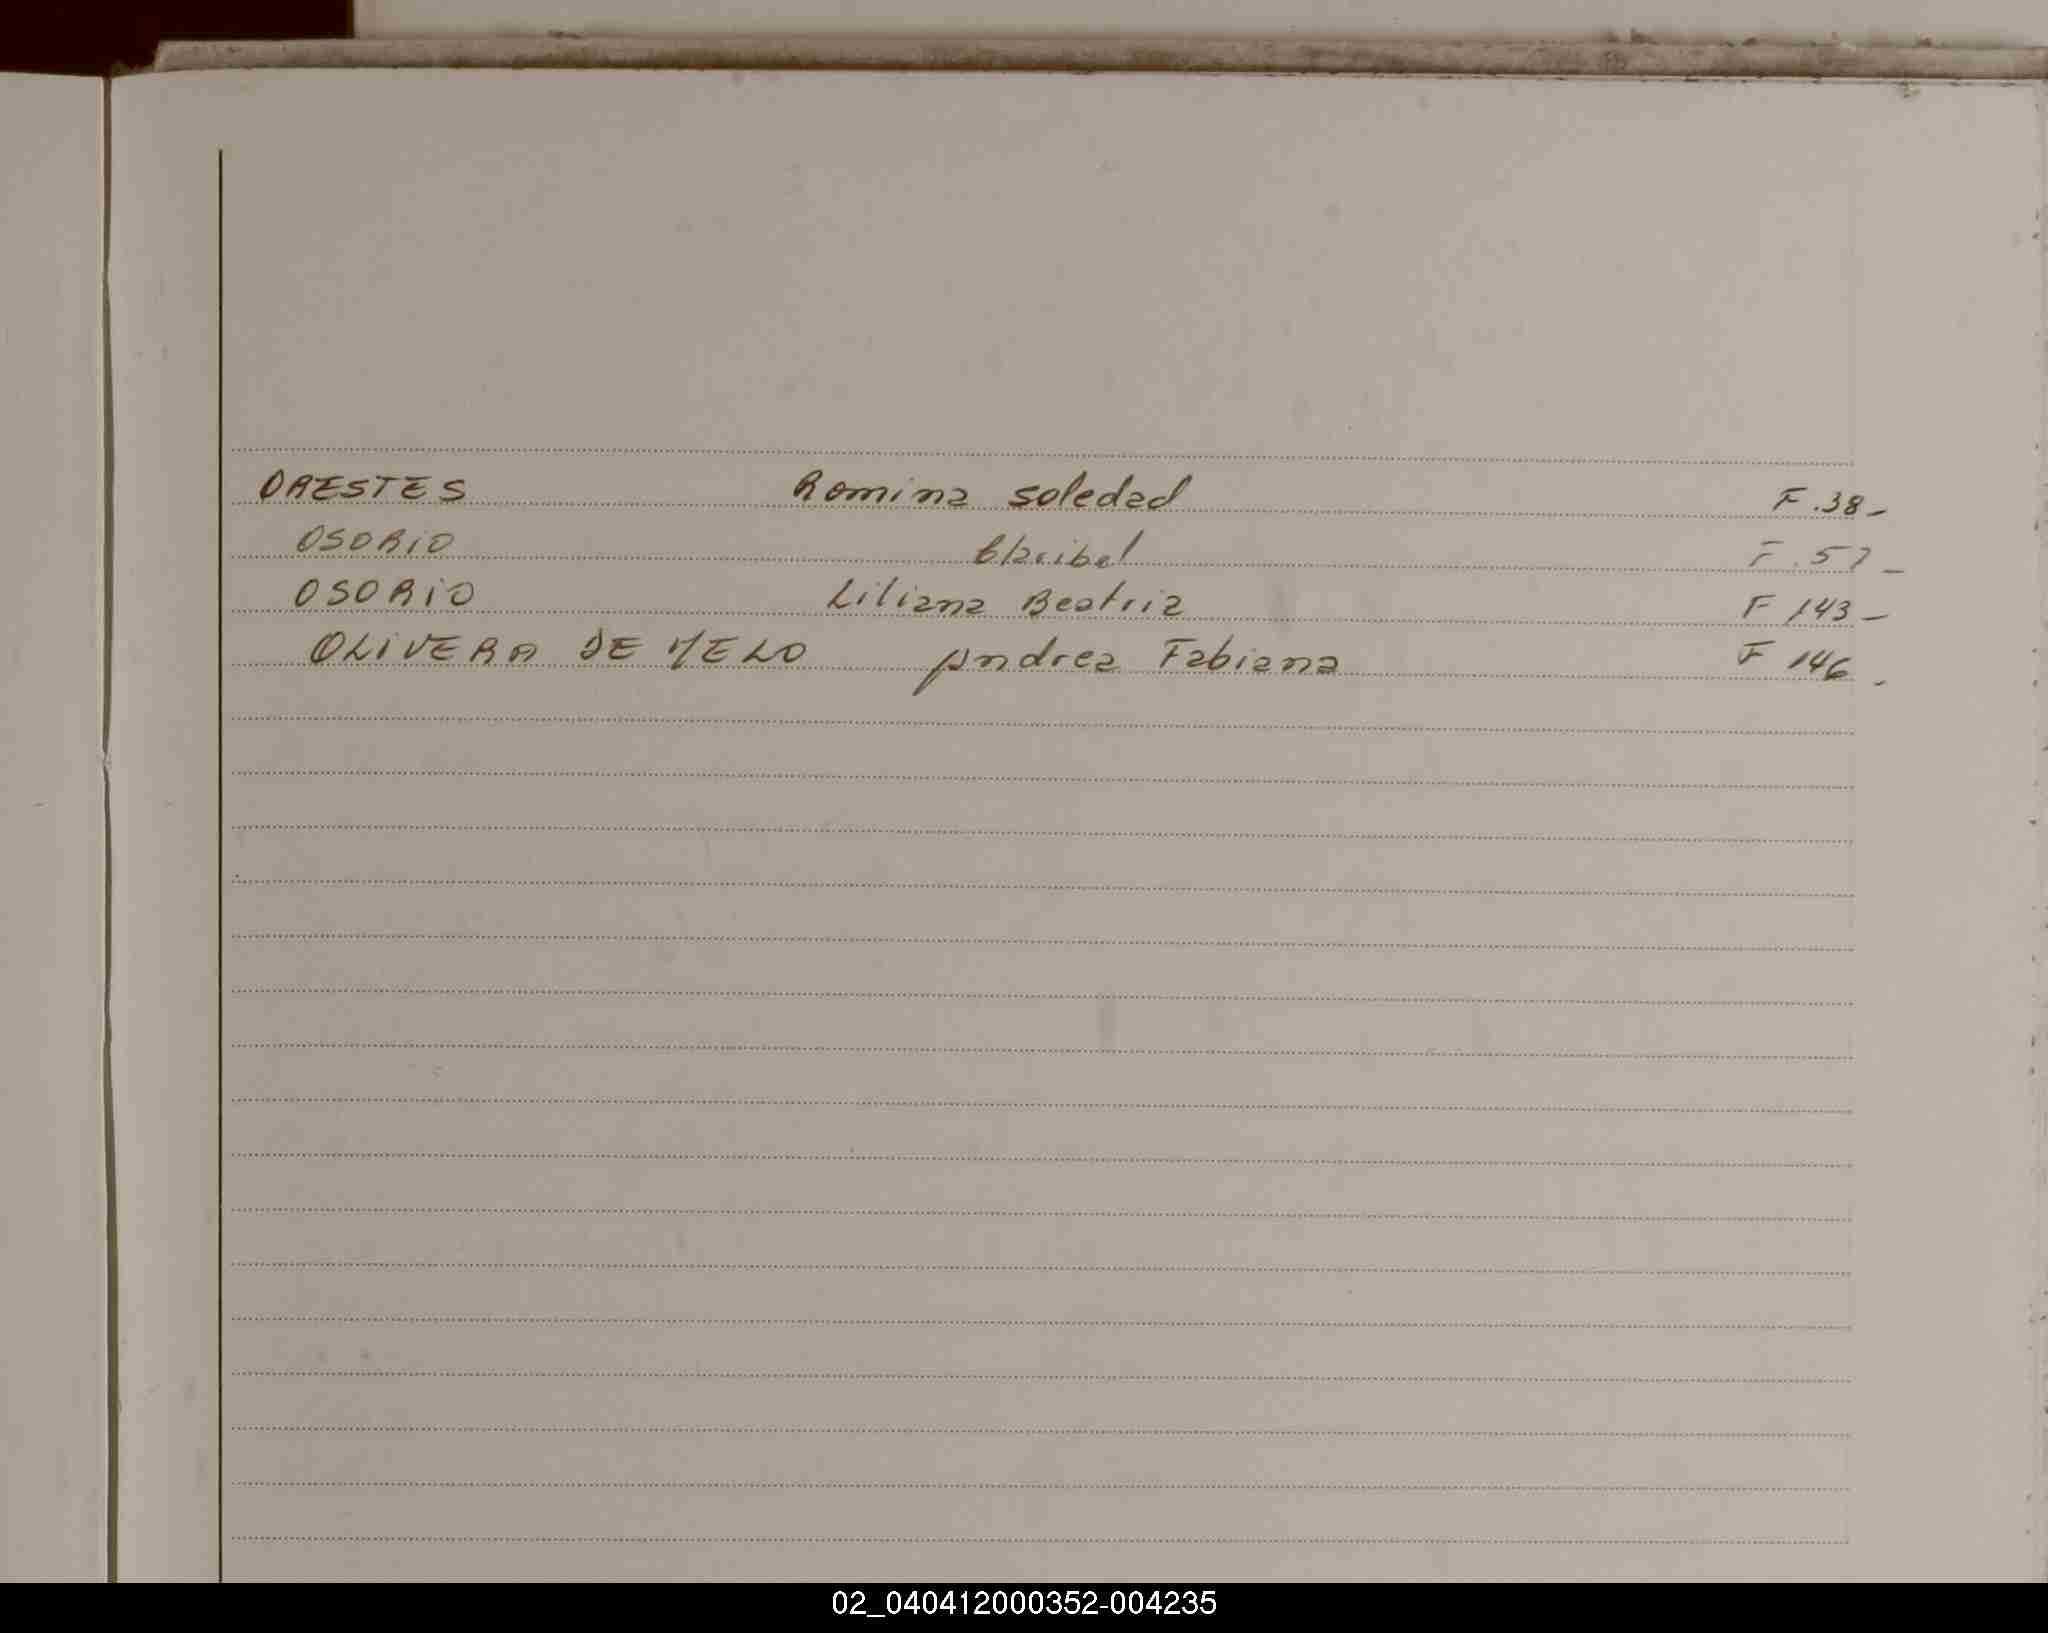 ORESTES Romina Soledad F.38-
OSORIO F.57-
OSORIO Liliana Beatriz F 143-
OLIVERA DE MELO Andrea Fabiana F 146-
02_040412000352-004235